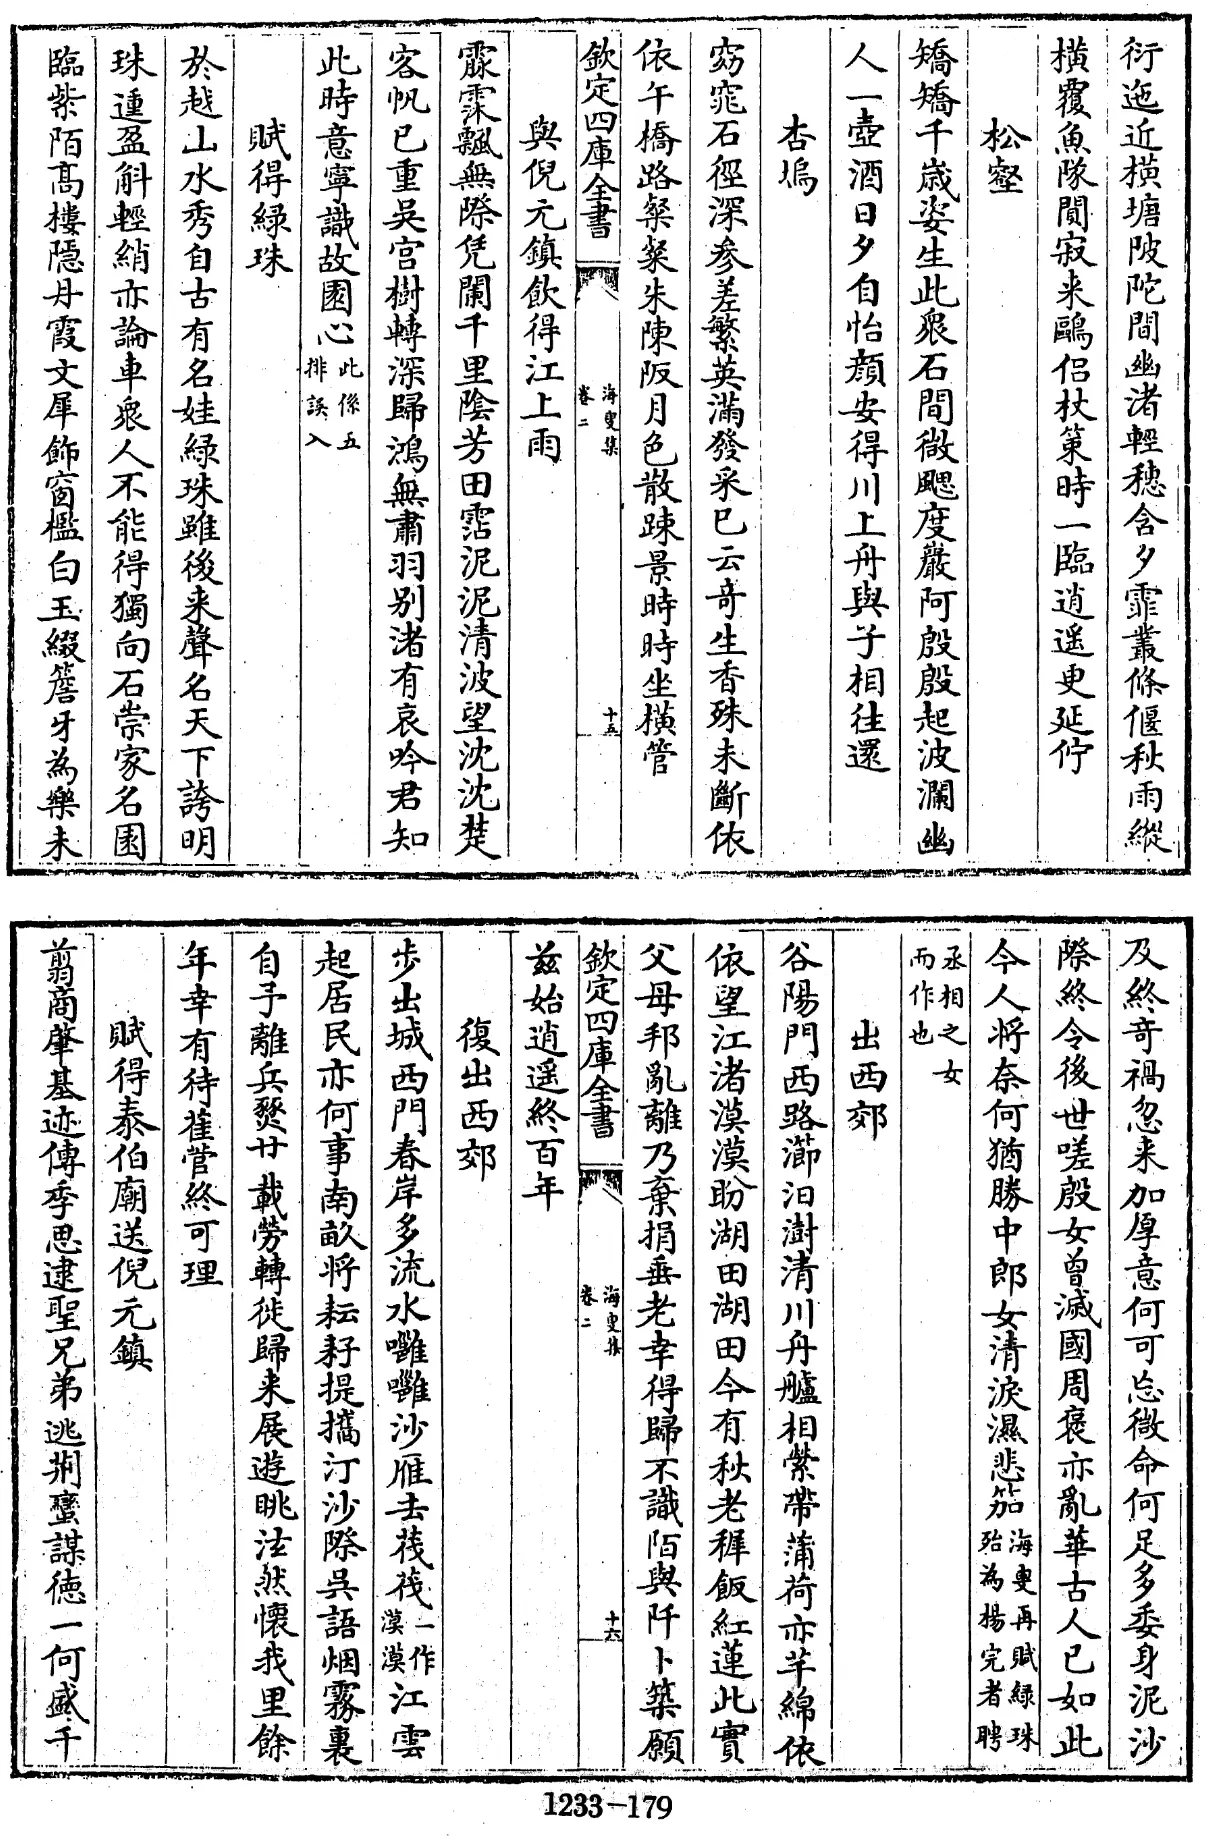 衍迤近橫塘陂陀間幽渚輕穗含夕霏叢條偃秋雨縱
橫覆魚隊閒寂来鷗侣杖策時一臨逍遥更延佇
松壑
矯矯千歳姿生此衆石間微颸度巖阿殷殷起波瀾幽
人一壺酒日夕自怡顔安得川上舟與子相往還
杏塢
窈窕石徑深參差繁英滿發采已云竒生香殊未斷依
依午橋路粲粲朱陳阪月色散踈景時時坐橫管
欽定四庫全書
海叟集
卷二
十五
與倪元鎮飲得江上雨
霢霂飄無際凭闌千里陰芳田霑泥泥清波望沈沈楚
客帆已重吳宫樹轉深歸鴻無肅羽别渚有哀吟君知
此時意寧識故園心此係五
排誤入
賦得緑珠
於越山水秀自古有名娃緑珠雖後来聲名天下誇明
珠連盈斛輕綃亦論車衆人不能得獨向石崇家名園
臨紫陌髙樓隱丹霞文犀飾窗櫺白玉綴簷牙為樂未
及終竒禍忽来加厚意何可忘微命何足多委身泥沙
際終令後世嗟殷女曾滅國周褒亦亂華古人已如此
今人將奈何猶勝中郎女清淚濕悲笳海叟再賦緑珠
殆為楊完者聘
丞相之女
而作也
出西郊
谷陽門西路㴚汩澍清川舟艫相縈帶蒲荷亦芊綿依
依望江渚漠漠盼湖田湖田今有秋老稺飯紅蓮此實
父母邦亂離乃棄捐垂老幸得歸不識陌與阡卜築願
欽定四庫全書
海叟集
卷二
十六
兹始逍遥終百年
復出西郊
步出城西門春岸多流水嗈嗈沙雁去茷茷一作
漠漠江雲
起居民亦何事南畝將耘耔提攜汀沙際吳語烟霧裏
自予離兵燹廿載勞轉徙歸来展遊眺泫然懷我里餘
年幸有待萑菅終可理
賦得泰伯廟送倪元鎮
翦商肇基迹傳季思逮聖兄弟逃荆蠻謀徳一何盛千
1233-179